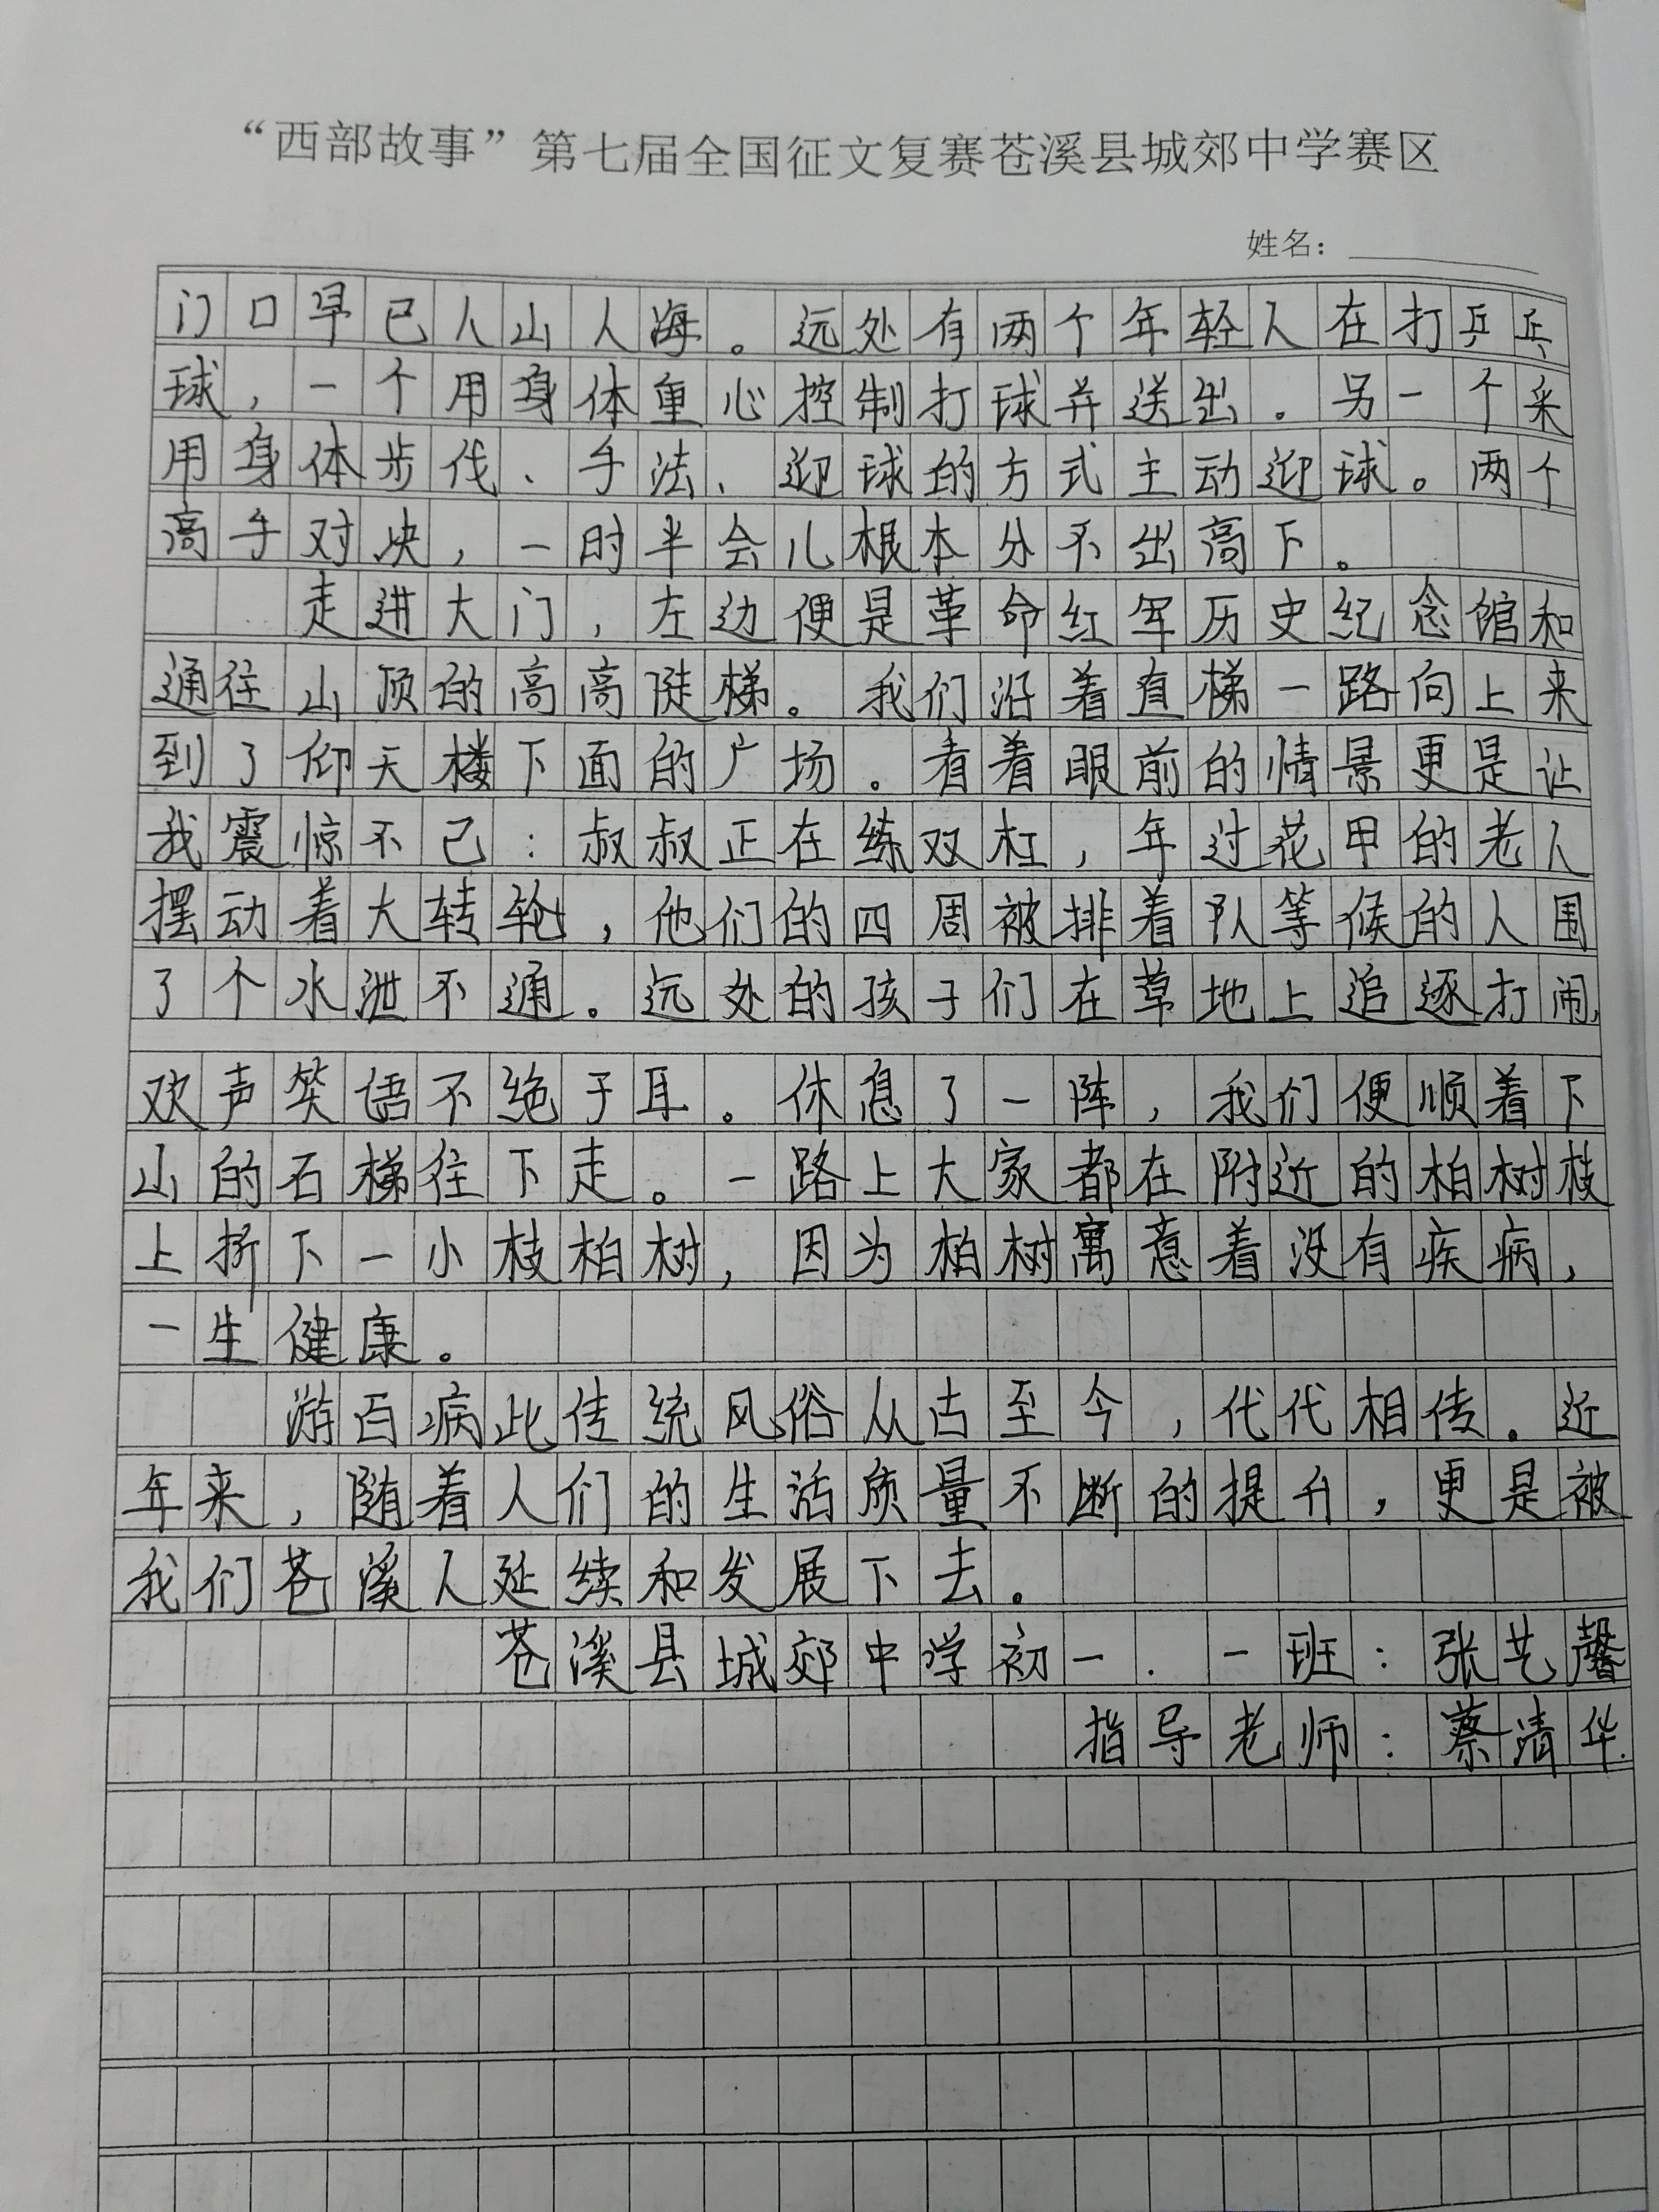 “西部故事”第七届全国征文复赛苍溪县城郊中学赛区
姓名：
门口早已人山人海。远处有两个年轻人在打乒乓
球，一个用身体重心控制打球并送出。另一个采
用身体步伐、手法、迎球的方式主动迎球。两个
高手对决，一时半会儿根本分不出高下。
走进大门，左边便是革命红军历史纪念馆和
通往山顶的高高陡梯。我们沿着直梯一路向上来
到了仰天楼下面的广场。看着眼前的情景更是让
我震惊不已：叔叔正在练双杠，年过花甲的老人
摆动着大转轮，他们的四周被排着队等候的人围
了个水泄不通。远处的孩子们在草地上追逐打闹，
欢声笑语不绝于耳。休息了一阵，我们便顺着下
山的石梯往下走。一路上大家都在附近的柏树枝
上折下一小枝柏树，因为柏树寓意着没有疾病，
一生健康。
游百病此传统风俗从古至今，代代相传。近
年来，随着人们的生活质量不断的提升，更是被
我们苍溪人延续和发展下去。
苍溪县城郊中学初一．一班：张艺馨
指导老师：蔡清华